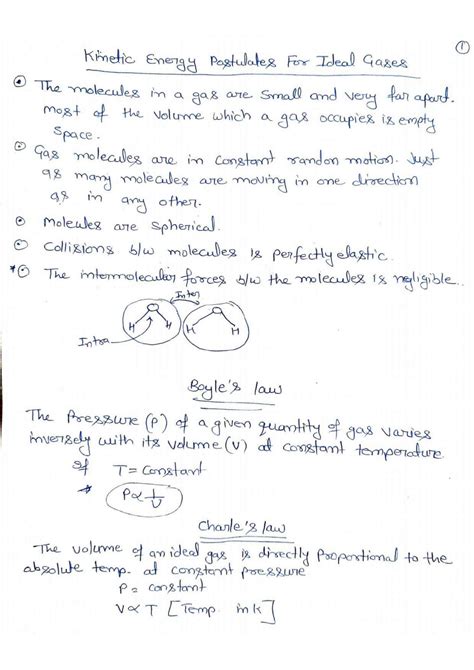 ①
Kinetic Energy Postulates For Ideal Gases
The molecules in a gas are small and very far apart.
most of the volume which a gas occupies is empty
space.
Gas molecules are in constant random motion. Just
as many molecules are moving in one direction
as in any other.
Molecules are spherical.
Collisions b/w molecules is perfectly elastic.
* The intermolecular forces b/w the molecules is negligible..
Inter
H H H H
Intra
Boyle's law
The Pressure (P) of a given quantity of gas varies
inversely with its volume (V) at constant temperature
If T = Constant
* P ∝ 1/V
Charle's law
The volume of an ideal gas is directly proportional to the
absolute temp. at constant pressure
P = constant
V ∝ T [Temp. in k]